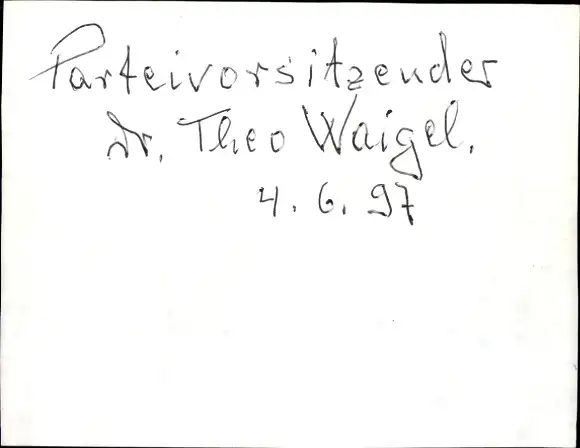 Parteivorsitzender
Dr. Theo Waigel.
4. 6. 97